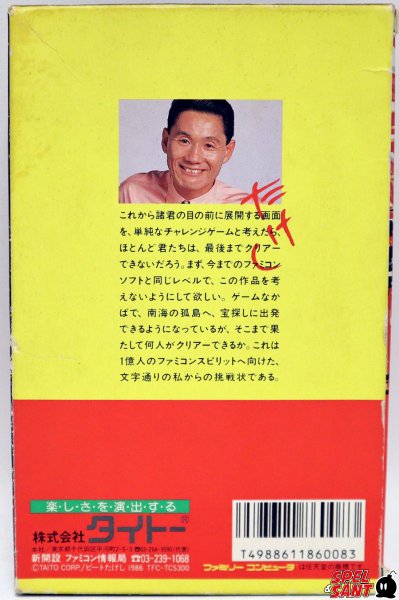 たけし
これから諸君の目の前に展開する画面
を、単純なチャレンジゲームと考えたら、
ほとんど君たちは、最後までクリアー
できないだろう。まず、今までのファミコン
ソフトと同じレベルで、この作品を考
えないようにして欲しい。ゲームなか
ばで、南海の孤島へ、宝探しに出発
できるようになっているが、そこまで果
たして何人がクリアーできるか。これは
1億人のファミコンスピリットへ向けた、
文字通りの私からの挑戦状である。
楽・し・さ・を・演・出・す・る
株式会社 タイトー®
本社/東京都千代田区平河町2-5-3 ☎03-264-3590(代表)
新開設 ファミコン情報局 ☎03-239-1068
©TAITO CORP./ビートたけし 1986 TFC-TC5300
T4988611860083
ファミリー コンピュータ は任天堂の商標です。
SPEL
SANT